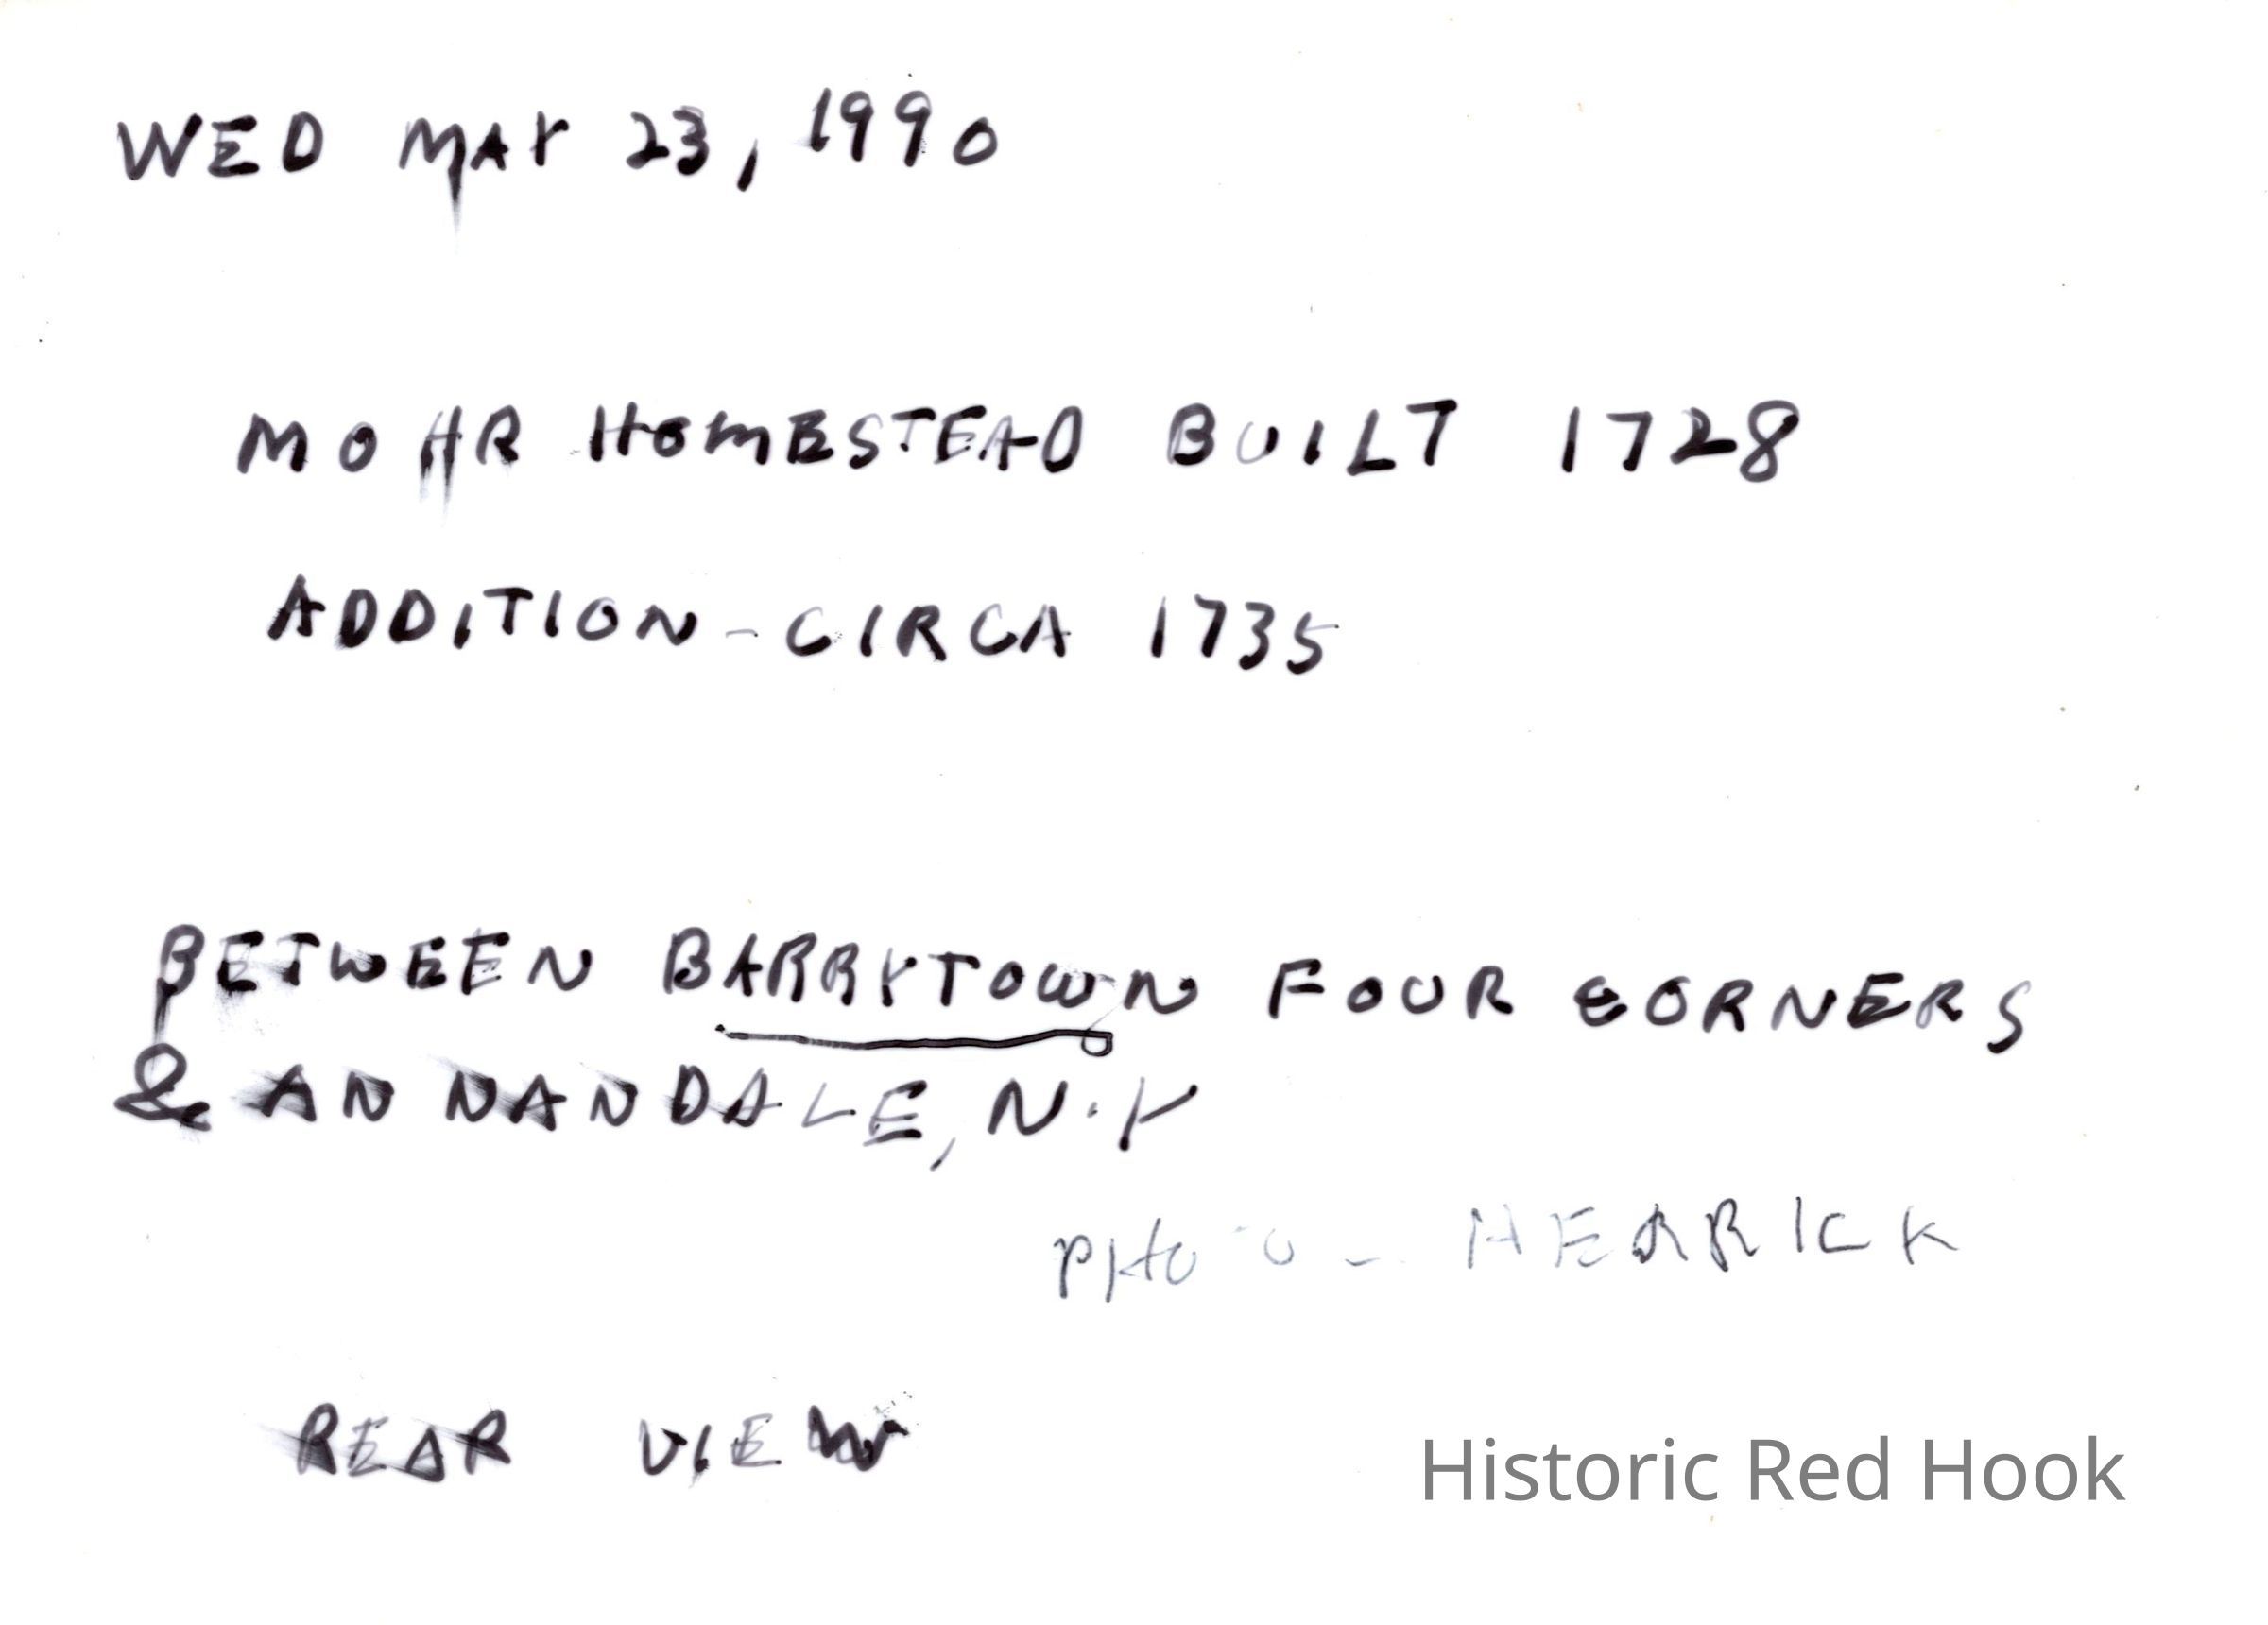 WED MAY 23, 1990
MOHR HOMESTEAD BUILT 1728
ADDITION - CIRCA 1735
BETWEEN BARRYTOWN FOUR CORNERS
& ANNANDALE, N.Y
PHOTO - HERRICK
REAR VIEW
Historic Red Hook